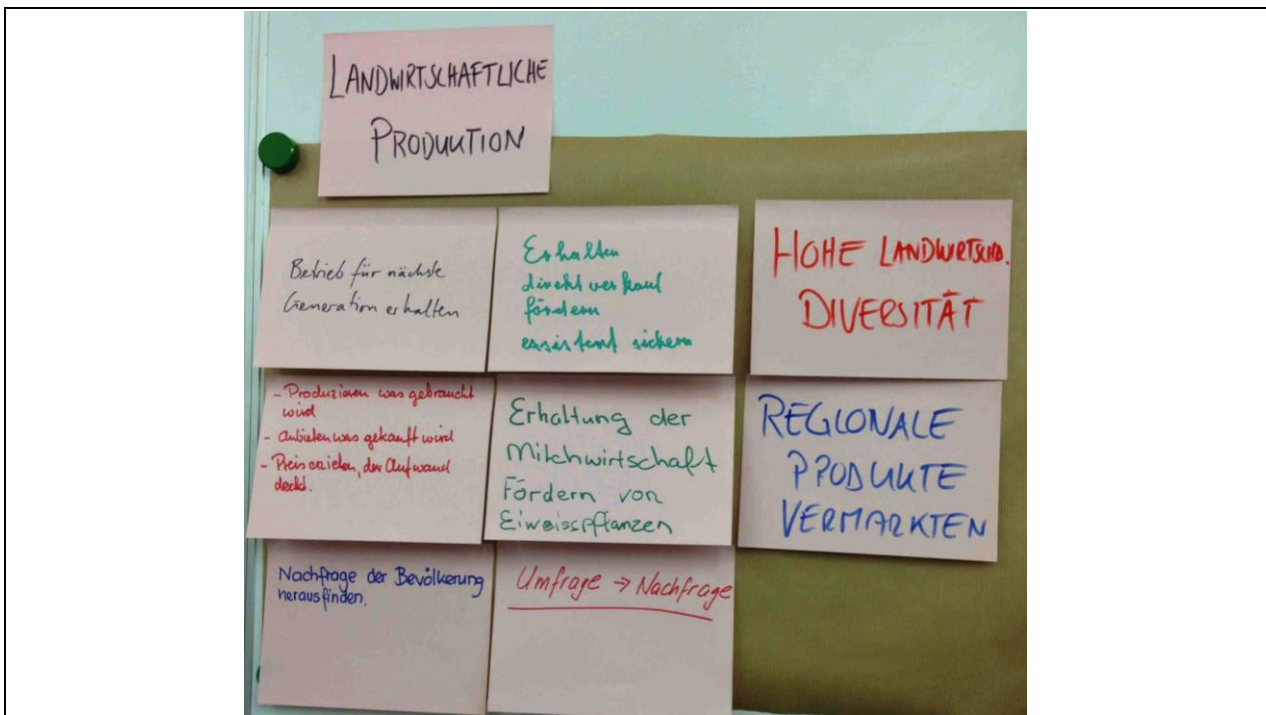 LANDWIRTSCHAFTLICHE
PRODUKTION
Betrieb für nächste
Generation erhalten
Erhalten
direktverkauf
fördern
essistent sichern
HOHE LANDWIRTSCHA.
DIVERSITÄT
- Produzieren was gebraucht
wird
- Anbieten was gekauft wird
- Preis erzielen, der Aufwand
deckt.
Erhaltung der
Milchwirtschaft
Fördern von
Eiweisspflanzen
REGIONALE
PRODUKTE
VERMARKTEN
Nachfrage der Bevölkerung
herausfinden.
Umfrage → Nachfrage